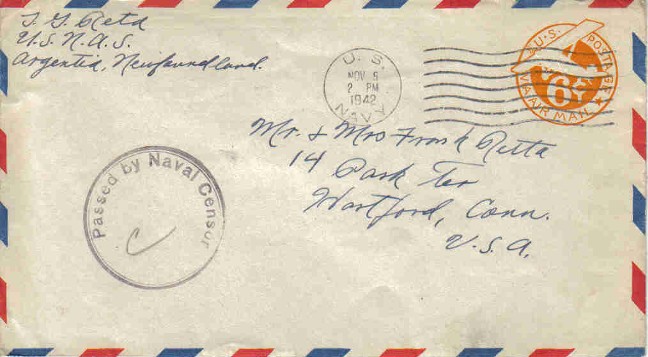 J. G. Reta
U.S.N.A.S.
Argentia, Newfoundland.
U.S.
NOV 5
2 PM
1942
NAVY
U.S. POSTAGE
6¢
VIA AIR MAIL
Mr. & Mrs Frank Retta
14 Park Ter
Hartford, Conn.
U.S.A.
Passed by Naval Censor
C